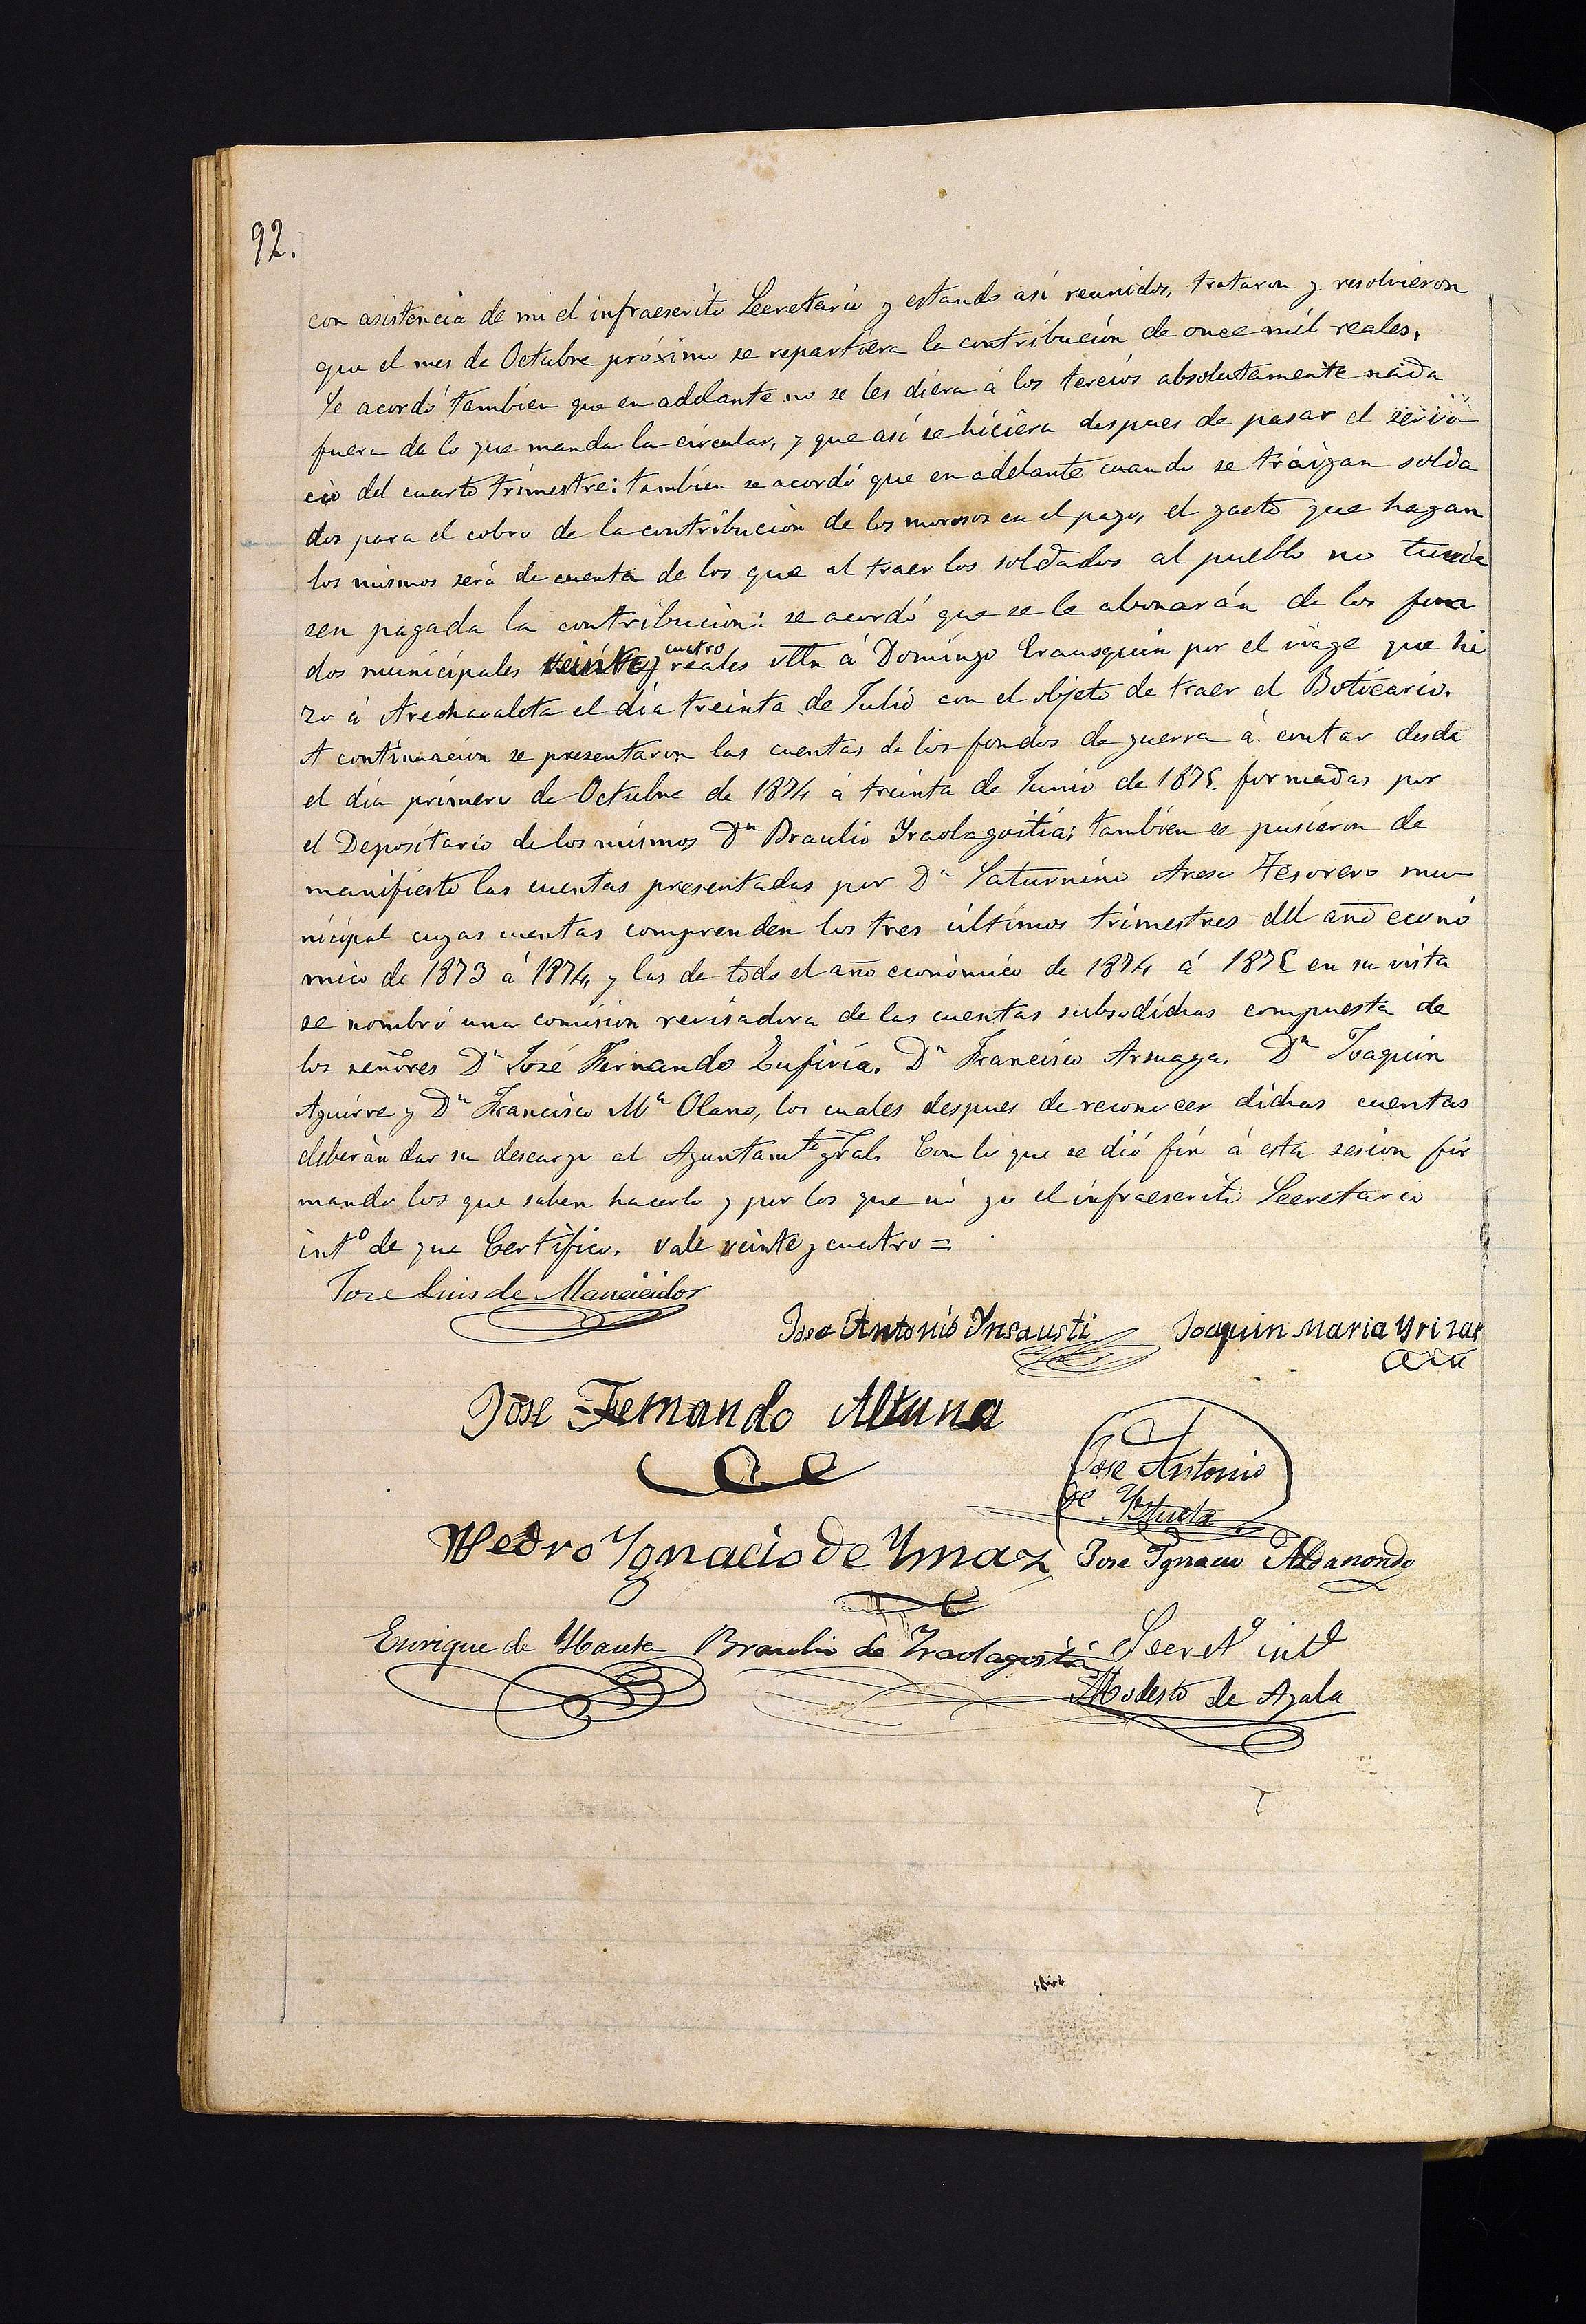 92.
con asistencia de mi el infraescrito Secretario y estando así reunidos, trataron y resolvieron
que el mes de Octubre próximo se repartiera la contribución de once mil reales,
Se acordó tambien que en adelante no se les diera á los tercios absolutamente nada
fuera de lo que manda la circular, y que así se hiciera despues de pasar el servi
cio del cuarto trimestre: tambien se acordó que en adelante cuando se tráigan solda
dos para el cobro de la contribución de los morosos en el pago, el gasto que hagan
los mismos será de cuenta de los que al traer los soldados al pueblo no tuvie
sen pagada la contribución: se acordó que se le abonarán de los fon
dos municipales veinte y cuatro reales vlln á Domingo Erausquin por el viage que hi
zo á Arechavaleta el día treinta de Julio con el objeto de traer el Boticario.
A continuacion se presentaron las cuentas de los fondos de guerra á contar desde
el día primero de Octubre de 1874 á treinta de Junio de 1875 formadas por
el Depositario de los mismos Dn Braulio Yraolagoitia; tambien se pusieron de
manifiesto las cuentas presentadas por Dn Saturnino Areso Tesorero mu
nicipal cuyas cuentas comprenden los tres últimos trimestres del año econó
mico de 1873 á 1874, y las de todo el año económico de 1874 á 1875 en su vista
se nombró una comision revisadora de las cuentas subsodichas compuesta de
los señores Dn José Fernando Zufiria, Dn Francisco Arsuaga, Dn Joaquin
Aguirre y Dn Francisco Mª Olano, los cuales despues de reconocer dichas cuentas
deberàn dar su descargo al Ayuntamto gral. Con lo que se dió fin á esta sesion fir
mando los que saben hacerlo y por los que nó yo el infraescrito Secretario
intº de que Certifico. vale veinte y cuatro =
Jose Luis de Mancicidor
Jose Antonio Ynsausti Joaquin Maria Yrizar
Jose Fernando Altuna
Jose Antonio
de Yztueta
Pedro Ygnacio de Ymaz Jose Ygnacio Aldanondo
Enrique de Braulio de Yraolagoitia Secretº intº
Modesto de Ayala